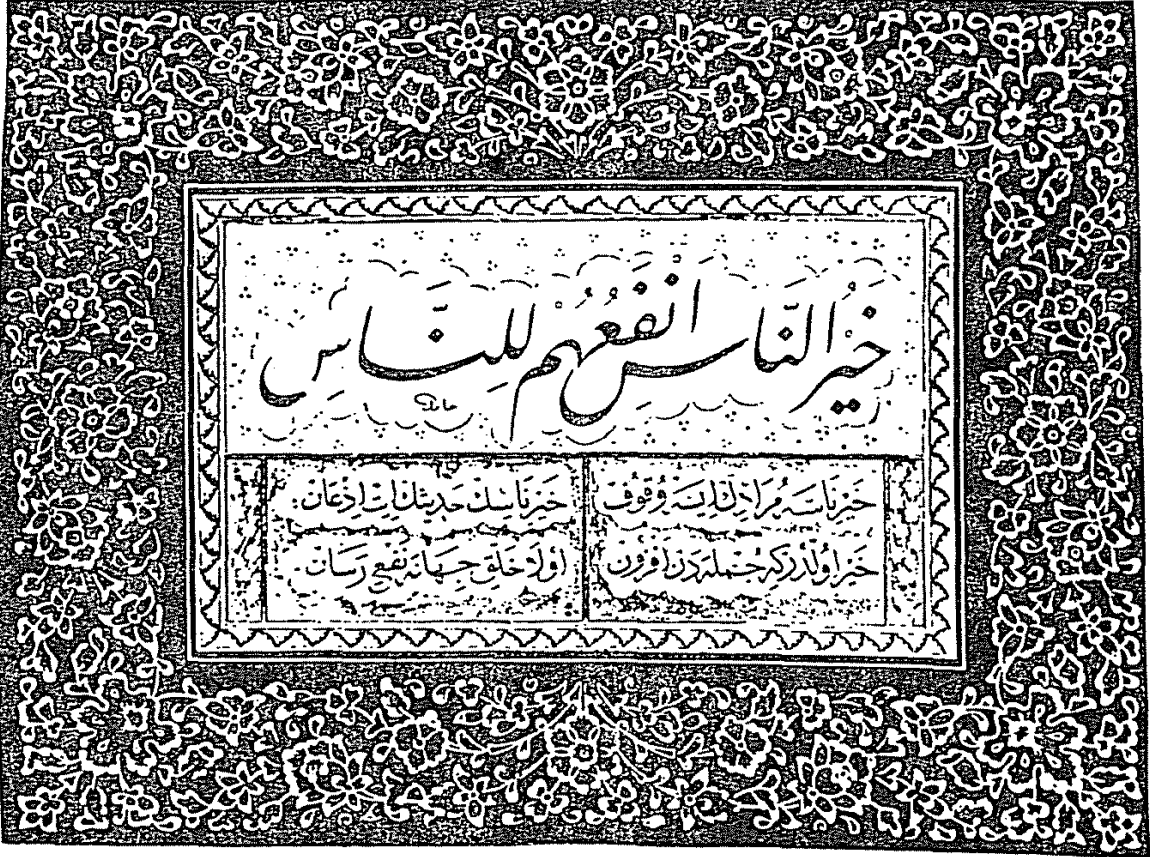 خَيْرُ النَّاسِ اَنْفَعُهُمْ لِلنَّاسِ
حامد
خير ناسه مرادك ايسه وقوف خير ناسك حديثن ات اذعان
خير اولدر كه جمله دن افزون اولا خلق جهانه نفع رسان